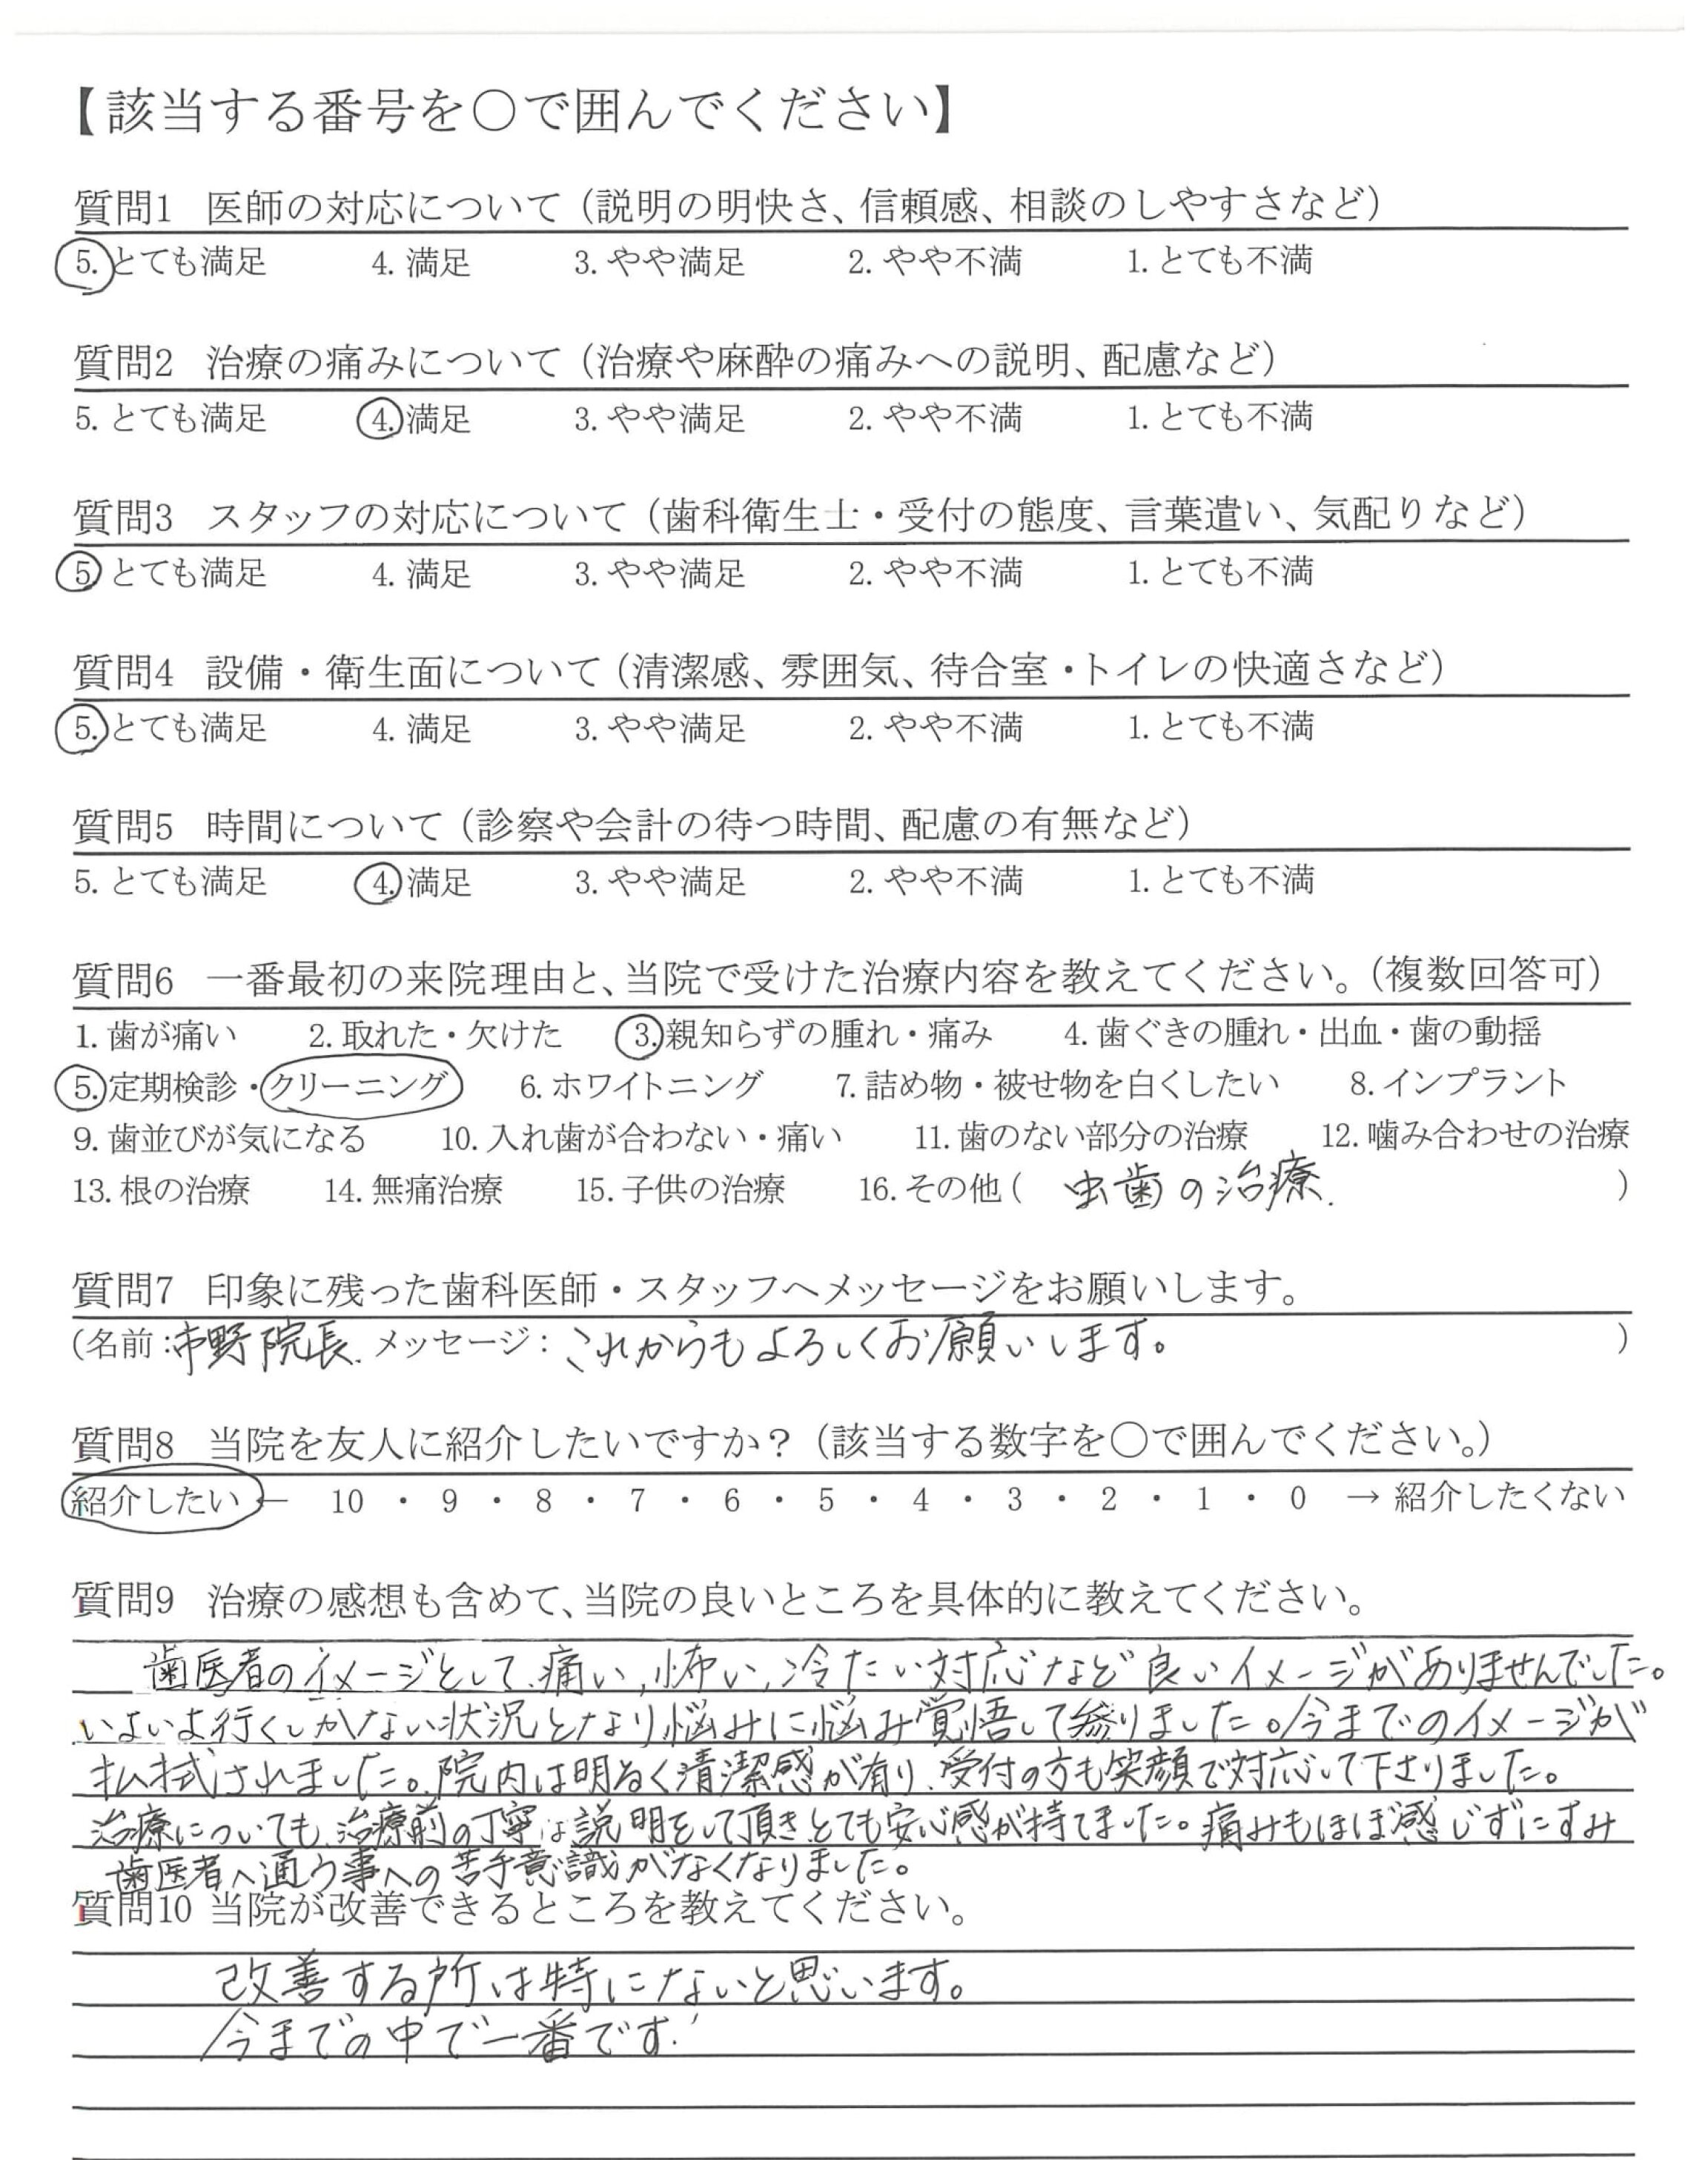 【該当する番号を○で囲んでください】
質問1 医師の対応について（説明の明快さ、信頼感、相談のしやすさなど）
5. とても満足 4. 満足 3. やや満足 2. やや不満 1. とても不満
質問2 治療の痛みについて（治療や麻酔の痛みへの説明、配慮など）
5. とても満足 4. 満足 3. やや満足 2. やや不満 1. とても不満
質問3 スタッフの対応について（歯科衛生士・受付の態度、言葉遣い、気配りなど）
5. とても満足 4. 満足 3. やや満足 2. やや不満 1. とても不満
質問4 設備・衛生面について（清潔感、雰囲気、待合室・トイレの快適さなど）
5. とても満足 4. 満足 3. やや満足 2. やや不満 1. とても不満
質問5 時間について（診察や会計の待つ時間、配慮の有無など）
5. とても満足 4. 満足 3. やや満足 2. やや不満 1. とても不満
質問6 一番最初の来院理由と、当院で受けた治療内容を教えてください。（複数回答可）
1. 歯が痛い 2. 取れた・欠けた 3. 親知らずの腫れ・痛み 4. 歯ぐきの腫れ・出血・歯の動揺
5. 定期検診・クリーニング 6. ホワイトニング 7. 詰め物・被せ物を白くしたい 8. インプラント
9. 歯並びが気になる 10. 入れ歯が合わない・痛い 11. 歯のない部分の治療 12. 噛み合わせの治療
13. 根の治療 14. 無痛治療 15. 子供の治療 16. その他（ 虫歯の治療. ）
質問7 印象に残った歯科医師・スタッフへメッセージをお願いします。
（名前：市野院長. メッセージ：これからもよろしくお願いします。 ）
質問8 当院を友人に紹介したいですか？（該当する数字を○で囲んでください。）
紹介したい ← 10 ・ 9 ・ 8 ・ 7 ・ 6 ・ 5 ・ 4 ・ 3 ・ 2 ・ 1 ・ 0 → 紹介したくない
質問9 治療の感想も含めて、当院の良いところを具体的に教えてください。
歯医者のイメージとして、痛い、怖い、冷たい対応など良いイメージがありませんでした。
いよいよ行くしかない状況となり悩みに悩み覚悟して参りました。今までのイメージが
払拭されました。院内は明るく清潔感が有り、受付の方も笑顔で対応して下さりました。
治療についても、治療前の丁寧な説明をして頂きとても安心感が持てました。痛みもほぼ感じずにすみ
歯医者へ通う事への苦手意識がなくなりました。
質問10 当院が改善できるところを教えてください。
改善する所は特にないと思います。
今までの中で一番です!